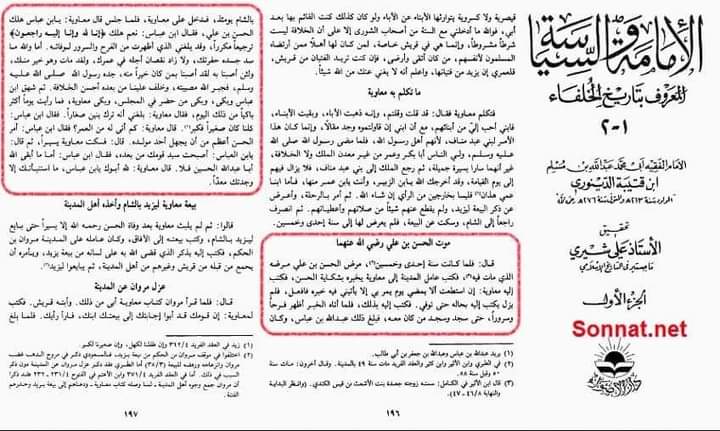 الإمامة والسياسة
المعروف بتاريخ الخلفاء
١-٢
الإمام الفقيه أبي محمد عبد الله بن مسلم
ابن قتيبة الدينوري
تحقيق
الأستاذ علي شيري
ماجستير في التاريخ الإسلامي
الجزء الأول
Sonnat.net
دار الأضواء
قيصرية ولا كسروية يتوارثها الأبناء عن الآباء ولو كان كذلك كنت القائم بها بعد
أبي، فوالله ما أدخلني مع الستة من أصحاب الشورى إلا على أن الخلافة ليست
شرطاً مشروطاً، وإنما هي في قريش خاصة، لمن كان لها أهلاً ممن ارتضاه
المسلمون لأنفسهم، من كان أتقى وأرضى، فإن كنت تريد الفتيان من قريش،
فلعمري إن يزيد من فتيانها، واعلم أنه لا يغني عنك من الله شيئاً.
ما تكلم به معاوية
فتكلم معاوية فقال: قد قلت وقلتم، وإنه ذهبت الآباء، وبقيت الأبناء،
فابني أحب إليّ من أبنائهم، مع أن ابني إن قاولتموه وجد مقالاً، وإنما كان هذا
الأمر لبني عبد مناف، لأنهم أهل رسول الله، فلما مضى رسول الله صلى الله
عليه وسلم، ولي الناس أبا بكر وعمر من غير معدن الملك ولا الخلافة،
غير أنهما سارا بسيرة جميلة، ثم رجع الملك إلى بني عبد مناف، فلا يزال فيهم
إلى يوم القيامة، وقد أخرجك الله يابن الزبير، وأنت يابن عمر منها، فأما ابنا
عمي هذان(١) فليسا بخارجين من الرأي إن شاء الله. ثم أمر بالرحلة، وأعرض
عن ذكر البيعة ليزيد، ولم يقطع عنهم شيئاً من صلاتهم وأعطياتهم. ثم انصرف
راجعاً إلى الشام، وسكت عن البيعة، فلم يعرض لها إلى سنة إحدى وخمسين.
موت الحسن بن علي رضي الله عنهما
قال: فلما كانت سنة إحدى وخمسين(٢)، مرض الحسن بن علي مرضه
الذي مات فيه(٣)، فكتب عامل المدينة إلى معاوية يخبره بشكاية الحسن، فكتب
إليه معاوية: إن استطعت ألا يمضي يوم بي يمر إلا يأتيني فيه خبره فافعل، فلم
يزل يكتب إليه بحاله حتى توفي. فكتب إليه بذلك، فلما أتاه الخبر أظهر فرحاً
وسروراً، حتى سجد وسجد من كان معه، فبلغ ذلك عبد الله بن عباس، وكان
(١) يريد عبد الله بن عباس وعبد الله بن جعفر بن أبي طالب.
١٩٦
بالشام يومئذ، فدخل على معاوية، فلما جلس قال معاوية: يابن عباس هلك
الحسن بن علي، فقال ابن عباس: نعم هلك ﴿إنا لله وإنا إليه راجعون﴾
ترجيعاً مكرراً، وقد بلغني الذي أظهرت من الفرح والسرور لوفاته. أما والله ما
سد جسده حفرتك، ولا زاد نقصان أجله في عمرك، ولقد مات وهو خير منك،
ولئن أصبنا به لقد أصبنا بمن كان خيراً منه، جده رسول الله صلى الله عليه
وسلم، فجبر الله مصيبته، وخلف علينا من بعده أحسن الخلافة. ثم شهق ابن
عباس وبكى، وبكى من حضر في المجلس، وبكى معاوية، فما رأيت يوماً أكثر
باكياً من ذلك اليوم، فقال معاوية: بلغني أنه ترك بنين صغاراً. فقال ابن عباس:
كلنا كان صغيراً فكبر(١). قال معاوية: كم أتى له من العمر؟ فقال ابن عباس: أمر
الحسن أعظم من أن يجهل أحد مولده. قال: فسكت معاوية يسيراً، ثم قال:
يابن العباس: أصبحت سيد قومك من بعده، فقال ابن عباس: أما ما أبقى الله
أبا عبد الله الحسين فلا. قال معاوية: لله أبوك يابن عباس، ما استنبأتك إلا
وجدتك معداً.
بيعة معاوية ليزيد بالشام وأخذه أهل المدينة
قالوا: ثم لم يلبث معاوية بعد وفاة الحسن رحمه الله إلا يسيراً حتى بايع
ليزيد بالشام، وكتب بيعته إلى الآفاق، وكان عامله على المدينة مروان بن
الحكم، فكتب إليه يذكر الذي قضى الله به على لسانه من بيعة يزيد، ويأمره أن
يجمع من قبله من قريش وغيرهم من أهل المدينة، ثم يبايعوا ليزيد(٢).
عزل مروان عن المدينة
قال: فلما قرأ مروان كتاب معاوية أبى من ذلك، وأبته قريش. فكتب
لمعاوية: إن قومك قد أبوا إجابتك إلى بيعتك ابنك، فارأ رأيك. فلما بلغ
١٩٧